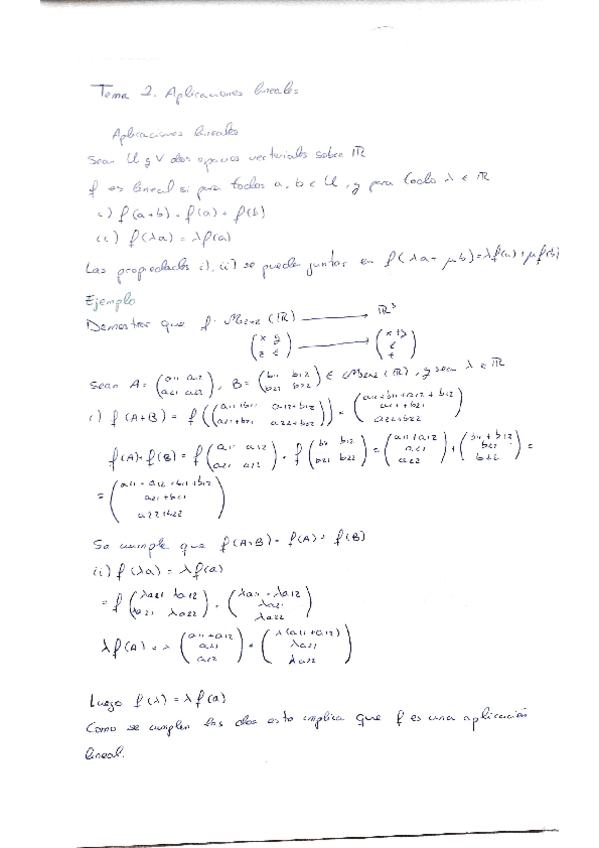 Tema 2. Aplicaciones lineales
Aplicaciones lineales
Sean U y V dos espacios vectoriales sobre ℝ
f es lineal si para todos a, b ∈ U, y para todo λ ∈ ℝ
i) f(a+b) = f(a) + f(b)
ii) f(λa) = λf(a)
Las propiedades i), ii) se pueden juntar en f(λa + μb) = λf(a) + μf(b)
Ejemplo
Demostrar que f: M2x2 (ℝ) → ℝ³
(x y; z t) → (x+y; z; t)
Sean A = (a11 a12; a21 a22), B = (b11 b12; b21 b22) ∈ M2x2 (ℝ), y sea λ ∈ ℝ
i) f(A+B) = f((a11+b11 a12+b12; a21+b21 a22+b22)) = (a11+b11+a12+b12; a21+b21; a22+b22)
f(A)+f(B) = f(a11 a12; a21 a22) + f(b11 b12; b21 b22) = (a11+a12; a21; a22) + (b11+b12; b21; b22) =
= (a11+a12+b11+b12; a21+b21; a22+b22)
Se cumple que f(A+B) = f(A) + f(B)
ii) f(λa) = λf(a)
= f(λa11 λa12; λa21 λa22) = (λa11+λa12; λa21; λa22)
λf(A) = λ(a11+a12; a21; a22) = (λ(a11+a12); λa21; λa22)
Luego f(λ) = λf(a)
Como se cumplen las dos esto implica que f es una aplicación
lineal.